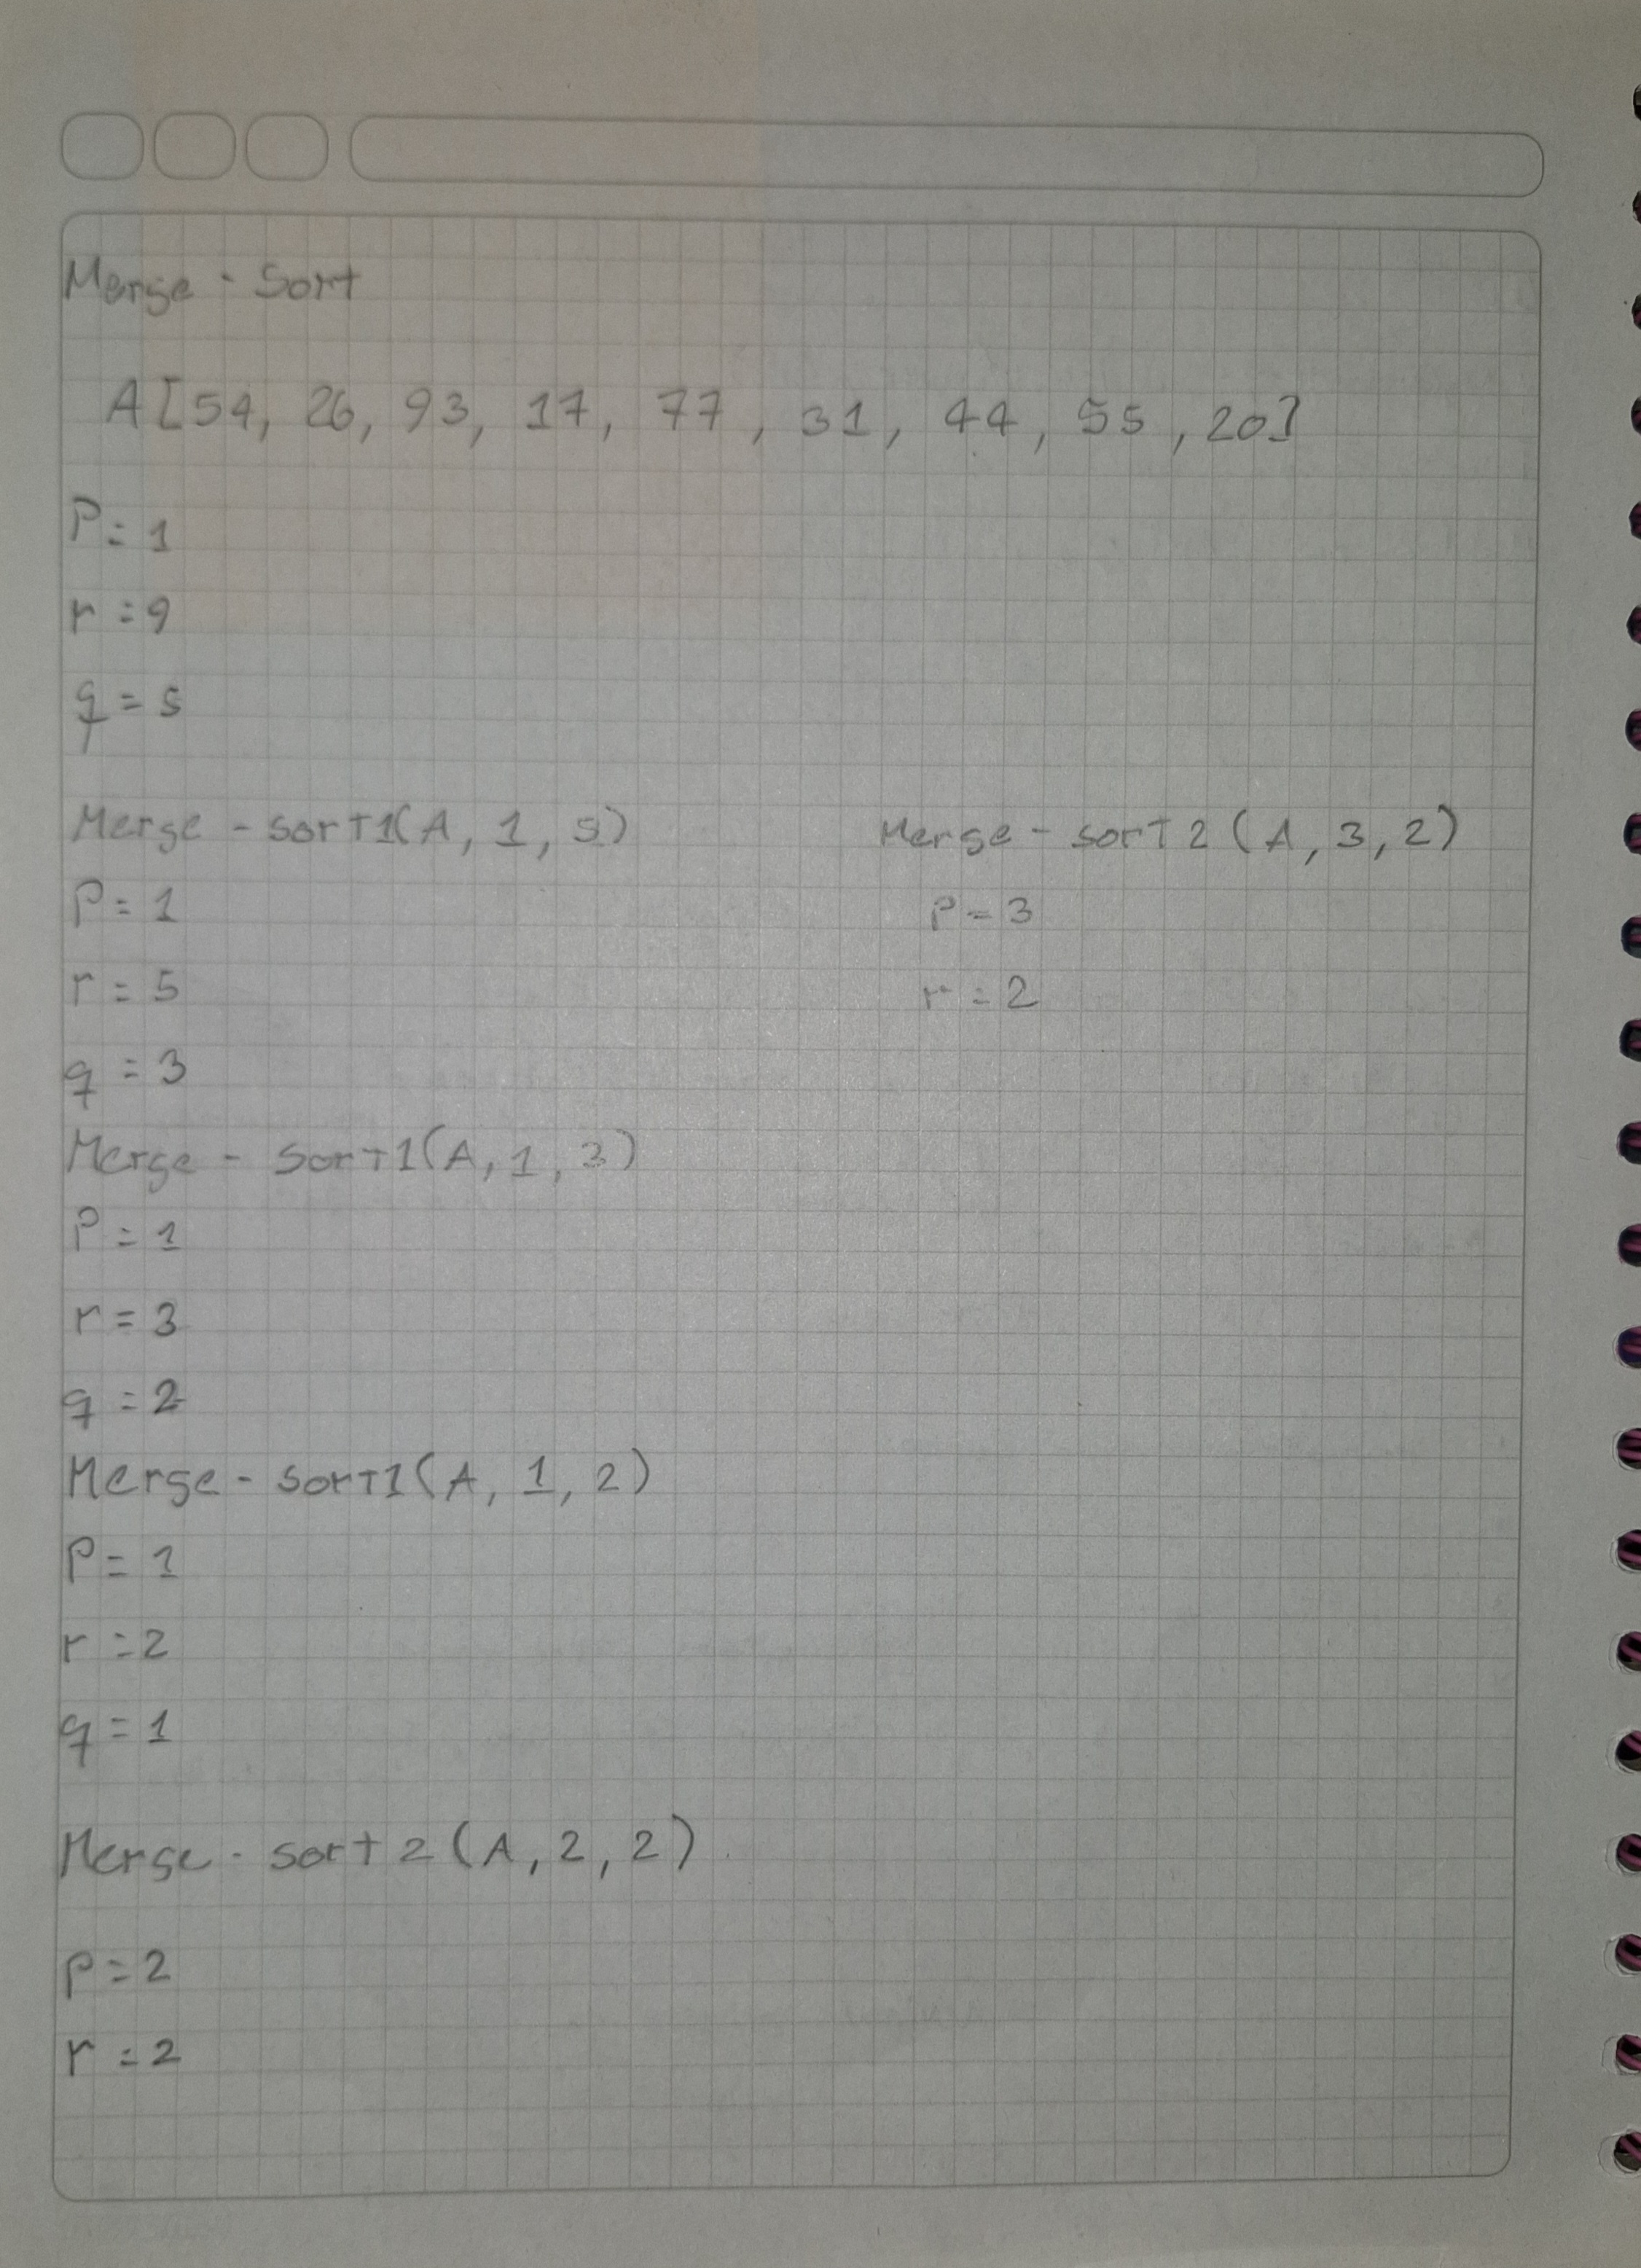 Merge - Sort
A[54, 26, 93, 17, 77, 31, 44, 55, 20]
P = 1
r = 9
q = 5
Merge - sort1(A, 1, 5)
P = 1
r = 5
q = 3
Merge - sort1(A, 1, 3)
P = 1
r = 3
q = 2
Merge - sort1(A, 1, 2)
P = 1
r = 2
q = 1
Merge - sort2(A, 2, 2)
P = 2
r = 2
Merge - sort2(A, 3, 2)
P = 3
r = 2